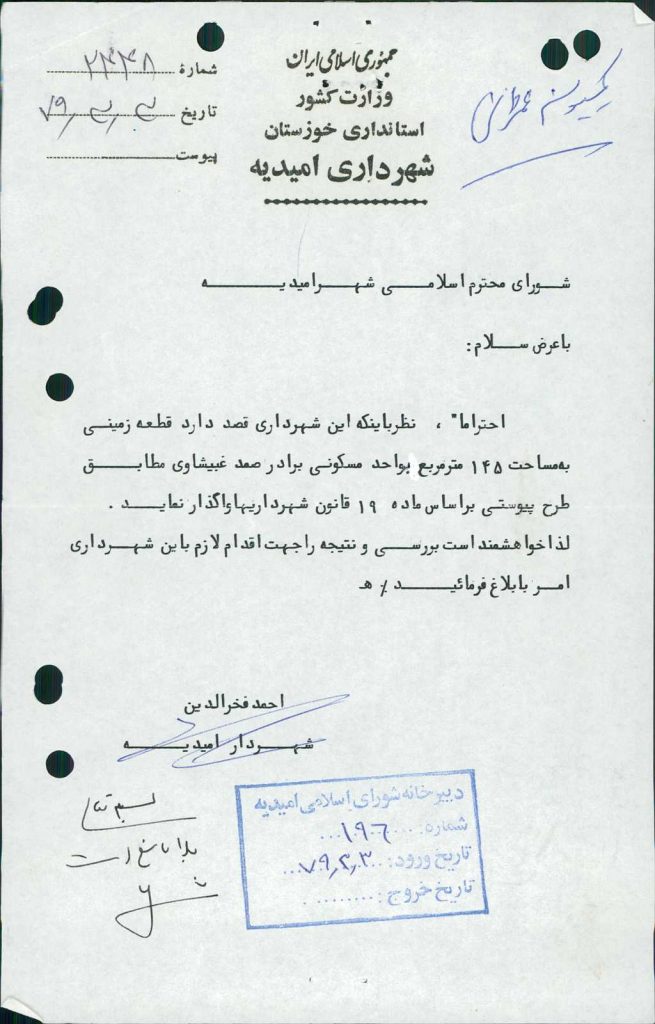 جمهوری اسلامی ایران
وزارت کشور
استانداری خوزستان
شهرداری امیدیه
شمارهٔ ۲۴۴۸
تاریخ ۷۹٫۳٫۳
پیوست
کمیسیون عمران
شورای محترم اسلامی شهرامیدیه
باعرض سلام:
احتراما"، نظرباینکه این شهرداری قصد دارد قطعه زمینی
به‌مساحت ۱۴۵ مترمربع بواحد مسکونی برادر صمد غبیشاوی مطابق
طرح پیوستی براساس ماده ۱۹ قانون شهرداریهاواگذار نماید.
لذاخواهشمنداست بررسی و نتیجه راجهت اقدام لازم باین شهرداری
امر باابلاغ فرمائید٪ ه
احمدفخرالدین
شهردار امیدیه
دبیرخانه شورای اسلامی امیدیه
شماره: ۱۹۶
تاریخ ورود: ۷۹٫۳٫۳
تاریخ خروج: